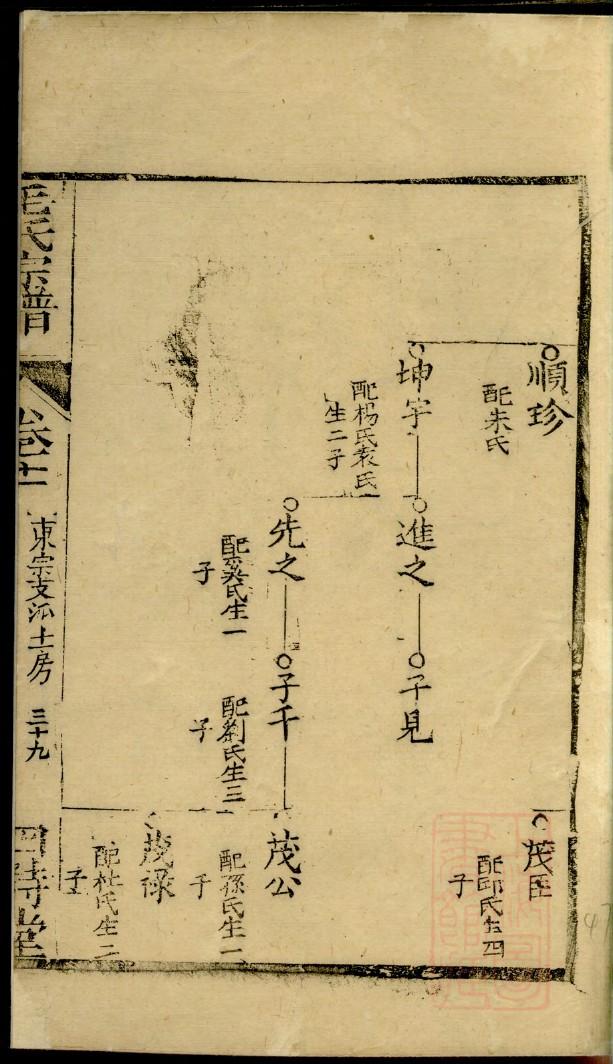 順珍
配朱氏
茂臣
配邱氏生四
子
坤宇
配楊氏袁氏
生二子
進之
子見
先之
配吳氏生一
子
子千
配劉氏生三
子
茂公
配孫氏生一
子
茂祿
配杜氏生二
子
氏宗譜
卷十一
東宗支派土房
三十九
堂